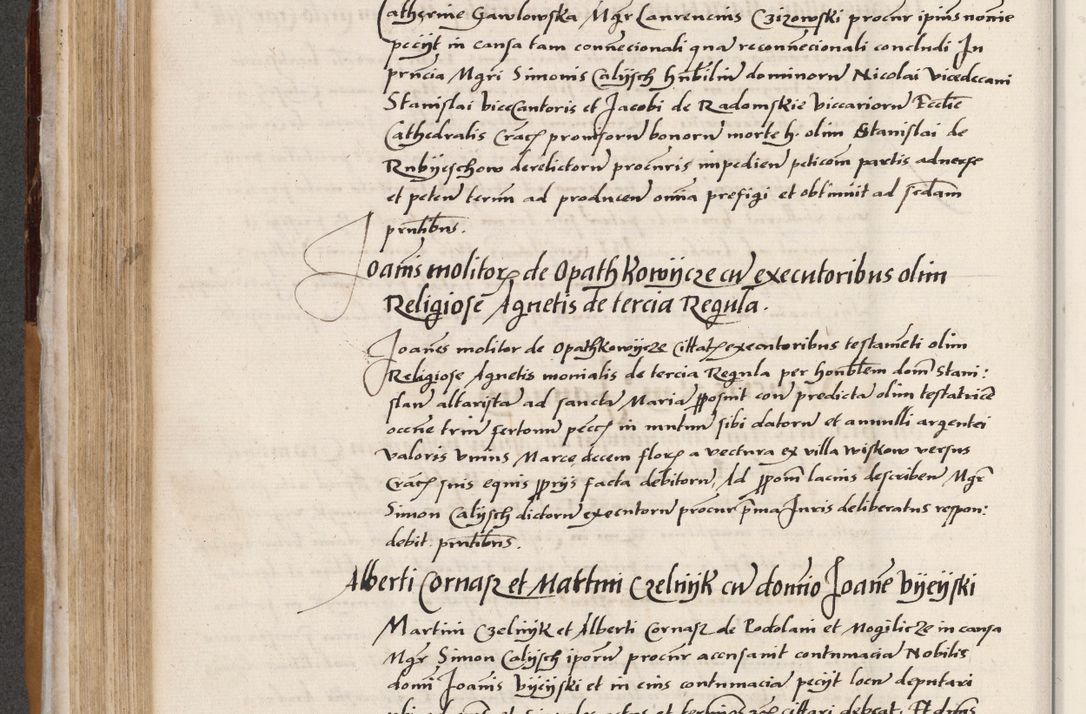 Catherine Gawlowska Mgr Laurencius Czizowski procur ipius nomie
peciit in causa tam conuecionali qua reconuecionali concludi In
pñcia Mgri Simonis Calijsch hnbiliu dominoru Nicolai Vicedecani
Stanislai ViceCantoris et Jacobi de Radomskie viccarioru Ecctie
Cathedralis Crac prouisoru bonoru morte h. olim Stanislai de
Rubyeschow derelictoru procuris impedien peticom partis aduerse
et peten termi ad producen omia prefigi et obtinuit ad sedam
pñtibus.
Joanis molitor de Opathkowijcze cu executoribus olim
Religiose Agnetis de tercia Regula.
Joanes molitor de Opathkowijcze cittat executoribus testameti olim
Religiose Agnetis monialis de tercia Regula per honblem dom Stani:
slau altarista ad sancta Maria pposuit con predicta olim testatrice
occne triu fertonu pecc in mutuu sibi datoru et annulli argentei
valoris vnius Marce, decem flor a vectura ex villa Wiskow versus
Crac suis equis pprijs facta debitoru, Ad pponi lacius describen Mgr
Simon Calijsch dictoru executoru procur pma Juris deliberatus respon:
debit. pñtibus.
Alberti Cornasz et Martini Czelnijk cu domio Joane Vijeijski
Martini Czelnijk et Alberti Cornasz de Podolani et Mogilicze in causa
Mgr Simon Calijsch iporu procur accusauit contumacia Nobilis
domi Joanis Vijeijski et in eius contumacia peciit locu deputari